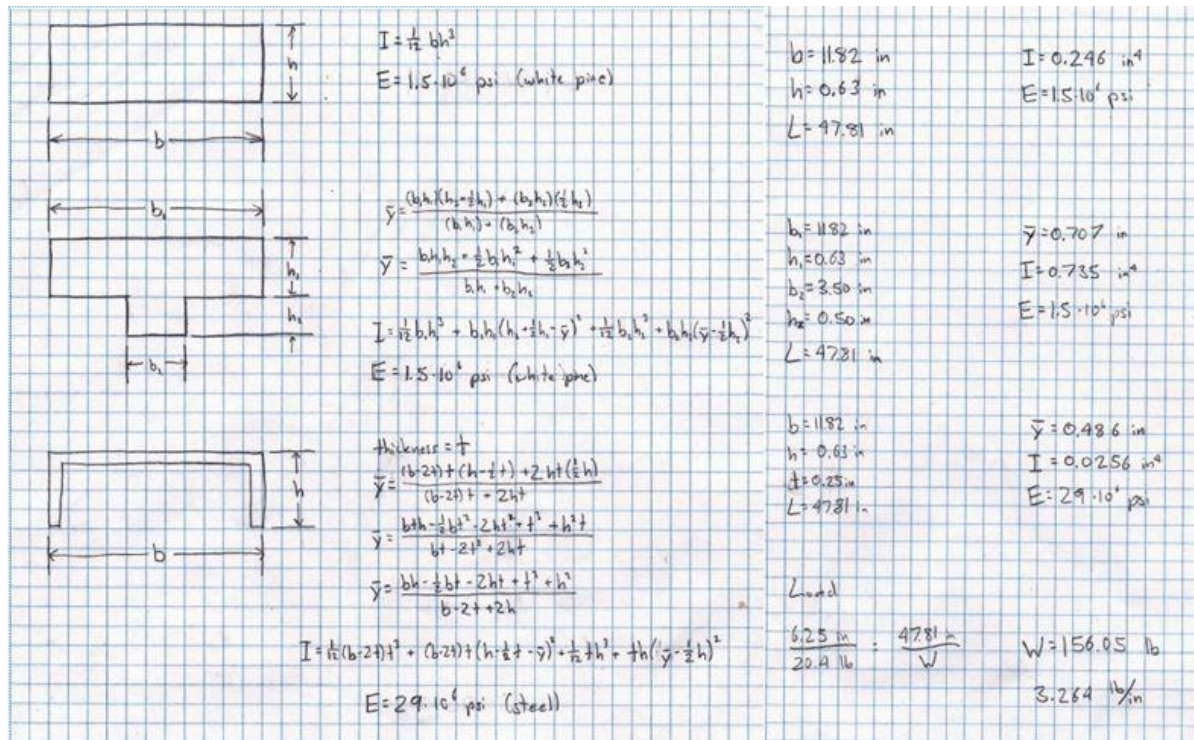 h
b
I = 1/12 bh³
E = 1.5·10⁶ psi (white pine)
b₁
h₁
h₂
b₂
ȳ = (b₁h₁)(h₂+½h₁) + (b₂h₂)(½h₂) / (b₁h₁) + (b₂h₂)
ȳ = b₁h₁h₂ + ½b₁h₁² + ½b₂h₂² / b₁h₁ + b₂h₂
I = 1/12 b₁h₁³ + b₁h₁(h₂ + ½h₁ - ȳ)² + 1/12 b₂h₂³ + b₂h₂(ȳ - ½h₂)²
E = 1.5·10⁶ psi (white pine)
h
b
thickness = t
ȳ = (b-2t)t(h-½t) + 2ht(½h) / (b-2t)t + 2ht
ȳ = bth - ½bt² - 2ht² + t³ + h²t / bt - 2t² + 2ht
ȳ = bh - ½bt - 2ht + t² + h² / b - 2t + 2h
I = 1/12(b-2t)t³ + (b-2t)t(h-½t-ȳ)² + 1/12 th³ + th(ȳ-½h)²
E = 29·10⁶ psi (steel)
b = 11.82 in
h = 0.63 in
L = 47.81 in
I = 0.246 in⁴
E = 1.5·10⁶ psi
b₁ = 11.82 in
h₁ = 0.63 in
b₂ = 3.50 in
h₂ = 0.50 in
L = 47.81 in
ȳ = 0.707 in
I = 0.735 in⁴
E = 1.5·10⁶ psi
b = 11.82 in
h = 0.63 in
t = 0.25 in
L = 47.81 in
ȳ = 0.486 in
I = 0.0256 in⁴
E = 29·10⁶ psi
Load
6.25 in / 20.4 lb = 47.81 in / W
W = 156.05 lb
3.264 lb/in